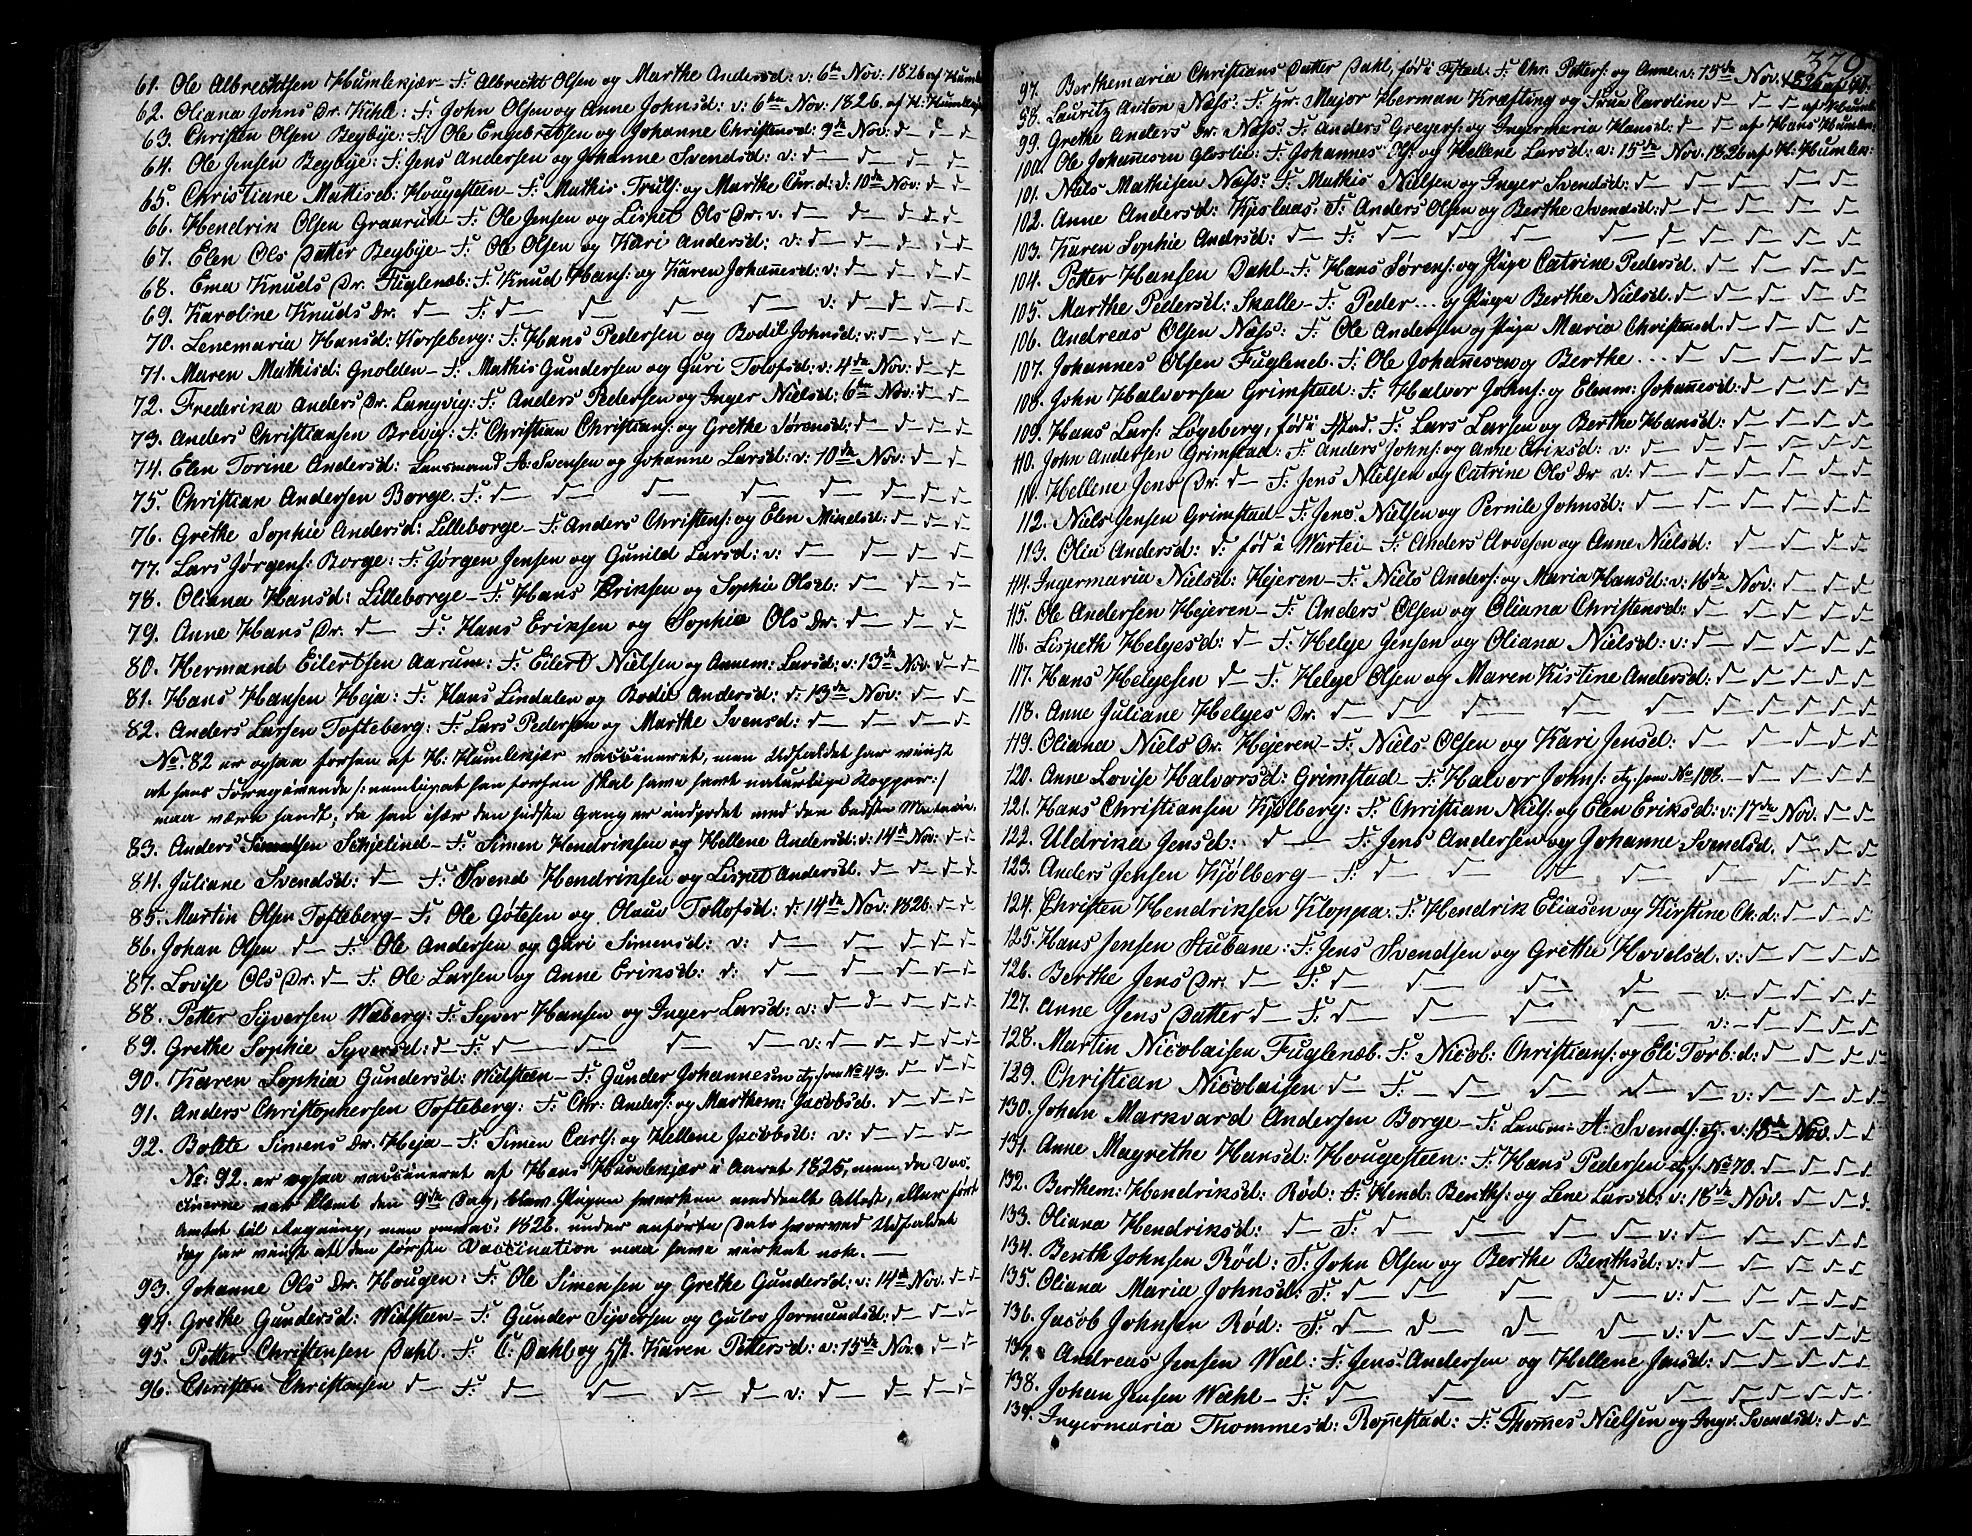 61. Ole Albrechtsen Humlekjær – F: Albrecht Olsen og Marthe Andersd: v: 6te Nov: 1826 af Humlek
62. Oliana Johns Dr. Kihle: F: John Olsen og Anne Johnsd: v: 6te Nov: 1826. af H: Humlekj
63. Christen Olsen Begbÿe: F: Ole Engebretsen og Johanne Christensd: 9de Nov: d— d d
64. Ole Jensen Begbÿe: F: Jens Andersen og Johanne Svendsd: v: d— d— d— d—
65. Christiane Mathisd: Hougesteen – F: Mathis Truls: og Marthe Chr.d: d: 10de Nov: d— d—
66. Hendrik Olsen Graarud – F: Ole Jensen og Lispet Ols Dr. v. d— d— d— d— d—
67. Elen Ols Datter Begbÿe – F: Ole Olsen og Kari Andersd: v: d— d— d— d— d—
68. Ema Knuds Dr. Fuglenæb: F: Knud Hans: og Karen Johanesd: v: d— d— d— d—
69. Karoline Knuds Dr. d— F: d— d— d— d— v: d— d— d— d—
70. Lenemaria Hansd: Korseberg: F: Hans Pedersen og Bodil Johnsd: v: d— d— d— d—
71. Maren Mathisd: Gnolden – F: Mathis Gundersen og Guri Tolofsd: v: 4de Nov: d— d—
72. Frederika Anders Dr. Langvig: F: Anders Pedersen og Inger Nielsd: 6te Nov: d— d—
73. Anders Christiansen Brevig: F: Christian Christians: og Grethe Sørensd: d— d— d— d—
74. Elen Torine Andersd: Lensmand A: Svensen og Johanne Larsd: v: 10de Nov: d— d—
75. Christian Andersen Borge. F: d— d— d— d— d— d— d— d—
76. Grethe Sophie Andersd: Lilleborge – F: Anders Christens: og Elen Mindsd: d— d— d—
77. Lars Jørgens: Borge: F: Jørgen Jensen og Gunild Larsd: v: d— d— d— d—
78. Oliana Hansd: Lilleborge – F: Hans Eriksen og Sophie Olsd: d— d— d— d—
79. Anne Hans Dr. d— F: Hans Eriksen og Sophia Ols Dr. d— d— d— d—
80. Hermand Eilertsen Aarum: F: Eilert Nielsen og Annem: Larsd: v: 13de Nov. d— d—
81. Hans Hansen Heja: F: Hans Lindalen og Bodil Andersd: d: 13de Nov: d— d—
82. Anders Larsen Tofteberg: F: Lars Pedersen og Marthe Svensd: d— d— d— d—
No: 82 er ogsaa forhen af H: Humlekjær vaccineret, men Udfaldet har viist
at hans Foregivende /: nemlig at han forhen skal have havt naturlige Kopper:/
maa være sandt, da han især den sidste Gang er indpodet med den bedste Materie.
83. Anders Simensen Schjelind – F: Simen Hendriksen og Hellene Andersd: v: 14de Nov: d— d—
84. Juliane Svendsd: d— F: Svend Hendriksen og Lispet Andersd. d— d— d— d—
85. Martin Olsen Tofteberg – F: Ole Gøtesen og Olauv Tollofsd: d: 14de Nov: 1826. d— d—
86. Johan Olsen d— F: Ole Andersen og Guri Simensd: v: d— d— d— d— d—
87. Lovise Ols Dr. d— F: Ole Larsen og Anne Eriksd: d: d— d— d— d— d—
88. Petter Syversen Wæberg: F: Syver Hansen og Inger Larsd: v: d— d— d— d— d—
89. Grethe Sophie Syversd: d— F: d— d— d— d— v: d— d— d— d— d—
90. Karen Sophia Gundersd: Widsteen – F: Gunder Johannesen etc. som No 43. d— d— d—
91. Anders Christophersen Tofteberg: F: Chr: Anders: og Marthem: Jacobsd. d— d— d—
92. Bolete Simens Dr. Heja – F: Simen Carls: og Hellene Jacobsd: v: d— d— d—
No: 92. er ogsaa vaccineret af Hans Humlekjær i Aaret 1825, men, da Vac-
cinerne var klemt den 9de Dag, blev Pigen hverken meddeelt Attest, eller ført
Antal til Regning, men omvac: 1826. under anførte Dato hvorved Udfaldet
dog har viist at den første Vaccination maa have virket nok. —
93. Johanne Ols Dr. Hougen: F: Ole Simensen og Grethe Gundersd: v: 14de Nov. d— d—
94. Grethe Gundersd: Widsteen – F: Gunder Syversen og Gulov Jormundsd: d— d— d—
95. Petter Christensen Dahl. F: C: Dahl og Karen Pettersd: v: 15de Nov. d— d—
96. Christen Christensen d— F: d— d— d— d— v: d— d— d— d—
379
97. Berthemaria Christians Datter Dahl, fød i F:stad. F: Chr. Petters: og Anne: v: 15de Nov. 1826 af H:
98. Lauritz Anton Næss: F: Hr. Major Herman Kræfting og Frue Caroline d— d— d— af Humle
99. Grethe Anders Dr. Næss: F: Anders Gregers: og Ingermaria Hansd: d— d— af Hans Humlek:
100. Ole Johanesen Glaslie: F: Johannes Ols: og Hellene Larsd: v: 15de Nov. 1826 af H: Humlek:
101. Niels Mathisen Næss: F: Mathis Nielsen og Inger Svendsd: d— d— d— d— d—
102. Anne Andersd: Kjeslaas: F: Anders Olsen og Berthe Svendsd: d— d— d— d— d—
103. Karen Sophie Andrsd: d— F: d— d— d— d— d— d— d— d— d—
104. Petter Hansen Dahl – F: Hans Sørens: og Pige Catrine Pedersd. d— d— d— d— d—
105. Marthe Pedersd: Skalle – F: Peder ... og Pige Berthe Nielsd. d— d— d— d— d—
106. Andreas Olsen Næss: F: Ole Andersen og Pige Maria Christensd. d— d— d— d—
107. Johannes Olsen Fugleneb. F: Ole Johanesen og Berthe ... d— d— d— d— d—
108. John Halvorsen Grimstad: F: Halvor Johns: og Elenm: Johanesd: d— d— d— d—
109. Hans Lars: Løgeberg, fød i F:stad. F: Lars Larsen og Berthe Hansd: d— d— d— d—
110. John Andersen Grimstad: F: Anders Johns: og Anne Eriksd: v: d— d— d— d— d—
111. Hellene Jens Dr. d— F: Jens Nielsen og Catrine Ols Dr. v: d— d— d— d— d—
112. Niels Jensen Grimstad – F: Jens Nielsen og Pernile Johnsd: d— d— d— d— d—
113. Olia Andersd: d: fød i Wartei – F: Anders Arvesen og Anne Nielsd: d— d— d— d—
114. Ingermaria Nielsd: Hejeren – F: Niels Anders: og Maria Hansd: v: 16de Nov: d— d—
115. Ole Andersen Hejeren – F: Anders Olsen og Oliana Christensd: d— d— d— d—
116. Lispeth Helgesd: d— F: Helge Jensen og Oliana Nielsd: v: d— d— d— d—
117. Hans Helgesen d— F: Helge Olsen og Maren Kistine Andersd: d— d— d— d—
118. Anne Juliane Helges Dr. d— d— d— d— d— d— d— d— d—
119. Oliana Niels Dr. Hejeren – F: Niels Olsen og Kari Jensd: d— d— d— d— d—
120. Anne Lovise Halvorsd: Grimstad – F: Halvor Johns: etc. som No 108. d— d— d— d—
121. Hans Christiansen Kjølberg: F: Christian Niels: og Elen Eriksd: v: 17de Nov. d— d—
122. Uldrika Jensd: d— F: Jens Andersen og Johanne Svendsd. d— d— d—
123. Anders Jensen Kjølberg – F: d— d— d— d— d— d— d—
124. Christen Hendriksen Kloppa: F: Hendrik Eliasen og Kirstine Ch:d: d— d— d—
125. Hans Jensen Stubane: F: Jens Svendsen og Grethe Hovelsd. v: d— d— d— d—
126. Berthe Jens Dr. d— F: d— d— d— d— v: d— d— d— d—
127. Anne Jens Datter d— F: d— d— d— d— v: d— d— d— d—
128. Martin Nicolaisen Fuglenæb. F: Nicol: Christians: og Eli Torb:d: d— d— d— d—
129. Christian Nicolaisen d— F: d— d— d— d— v: d— d— d— d—
130. Johan Markvard Andersen Borge – F: Lensm: A: Svends: etc. v: 18de Nov. d— d—
131. Anne Magrethe Hansd: Hougesteen: F: Hans Pedersen etc. s. No 70. d— d— d— d—
132. Berthem: Hendriksd: Rød: F: Hend: Benths: og Lene Larsd: v: 18de Nov. d— d— d.
133. Oliana Hendriksd: d— F: d— d— d— d— v: d— d— d— d—
134. Benth Johnsen Rød: F: John Olsen og Berthe Benthsd: v: d— d— d— d— d—
135. Oliana Maria Johnsd: F: d— d— d— d— v: d— d— d— d—
136. Jacob Johnsen Rød: F: d— d— d— d— v: d— d— d— d—
137. Andreas Jensen Wæl: F: Jens Andersen og Hellene Jensd: d— d— d— d— d—
138. Johan Jensen Wæhl – F: d— d— d— d— d— d— d— d—
139. Ingermaria Thommesd: Ropestad: F: Thomes Nielsen og Inger Svendsd: d— d—